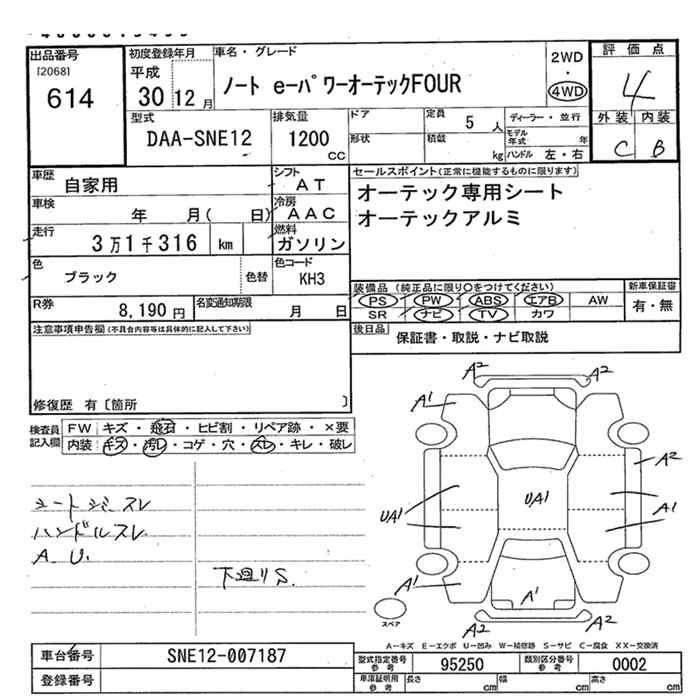 出品番号
[2068]
614
初度登録年月
平成
30 12 月
車名・グレード
ノート eーパワーオーテックFOUR
2WD
・
4WD
評価点
4
外装 内装
C B
型式
DAA-SNE12
排気量
1200
CC
ドア
形状
定員 5 人
積載 kg
ディーラー・並行
モデル年式 年
ハンドル 左・右
車歴
自家用
シフト
AT
車検
年 月( 日)
冷房
AAC
走行
3万1千316 km
燃料
ガソリン
色
ブラック
色替
色コード
KH3
R券
8,190 円
名変通知期限
月 日
セールスポイント(正常に機能するものに限ります)
オーテック専用シート
オーテックアルミ
装備品(純正品に限り○をつけてください)
PS PW ABS エアB AW
SR ナビ TV カワ
新車保証書
有・無
後日品 保証書・取説・ナビ取説
注意事項申告欄(不具合内容等は具体的に記入して下さい)
修復歴 有〔箇所 〕
検査員記入欄
FW キズ・飛石・ヒビ割・リペア跡・×要
内装 キズ・汚レ・コゲ・穴・スレ・キレ・破レ
シートシミスレ
ハンドルスレ
A.U.
下廻りS.
A2 A2
A1
A2
UA1 UA1 A1
A1
A1
A2 A2
スペア
A-キズ E-エクボ U-凹み W-補修跡 S-サビ C-腐食 XX-交換済
車台番号 SNE12-007187
登録番号
型式指定番号 参考 95250
類別区分番号 参考 0002
車庫証明用 参考 長さ cm 幅 cm 高さ cm